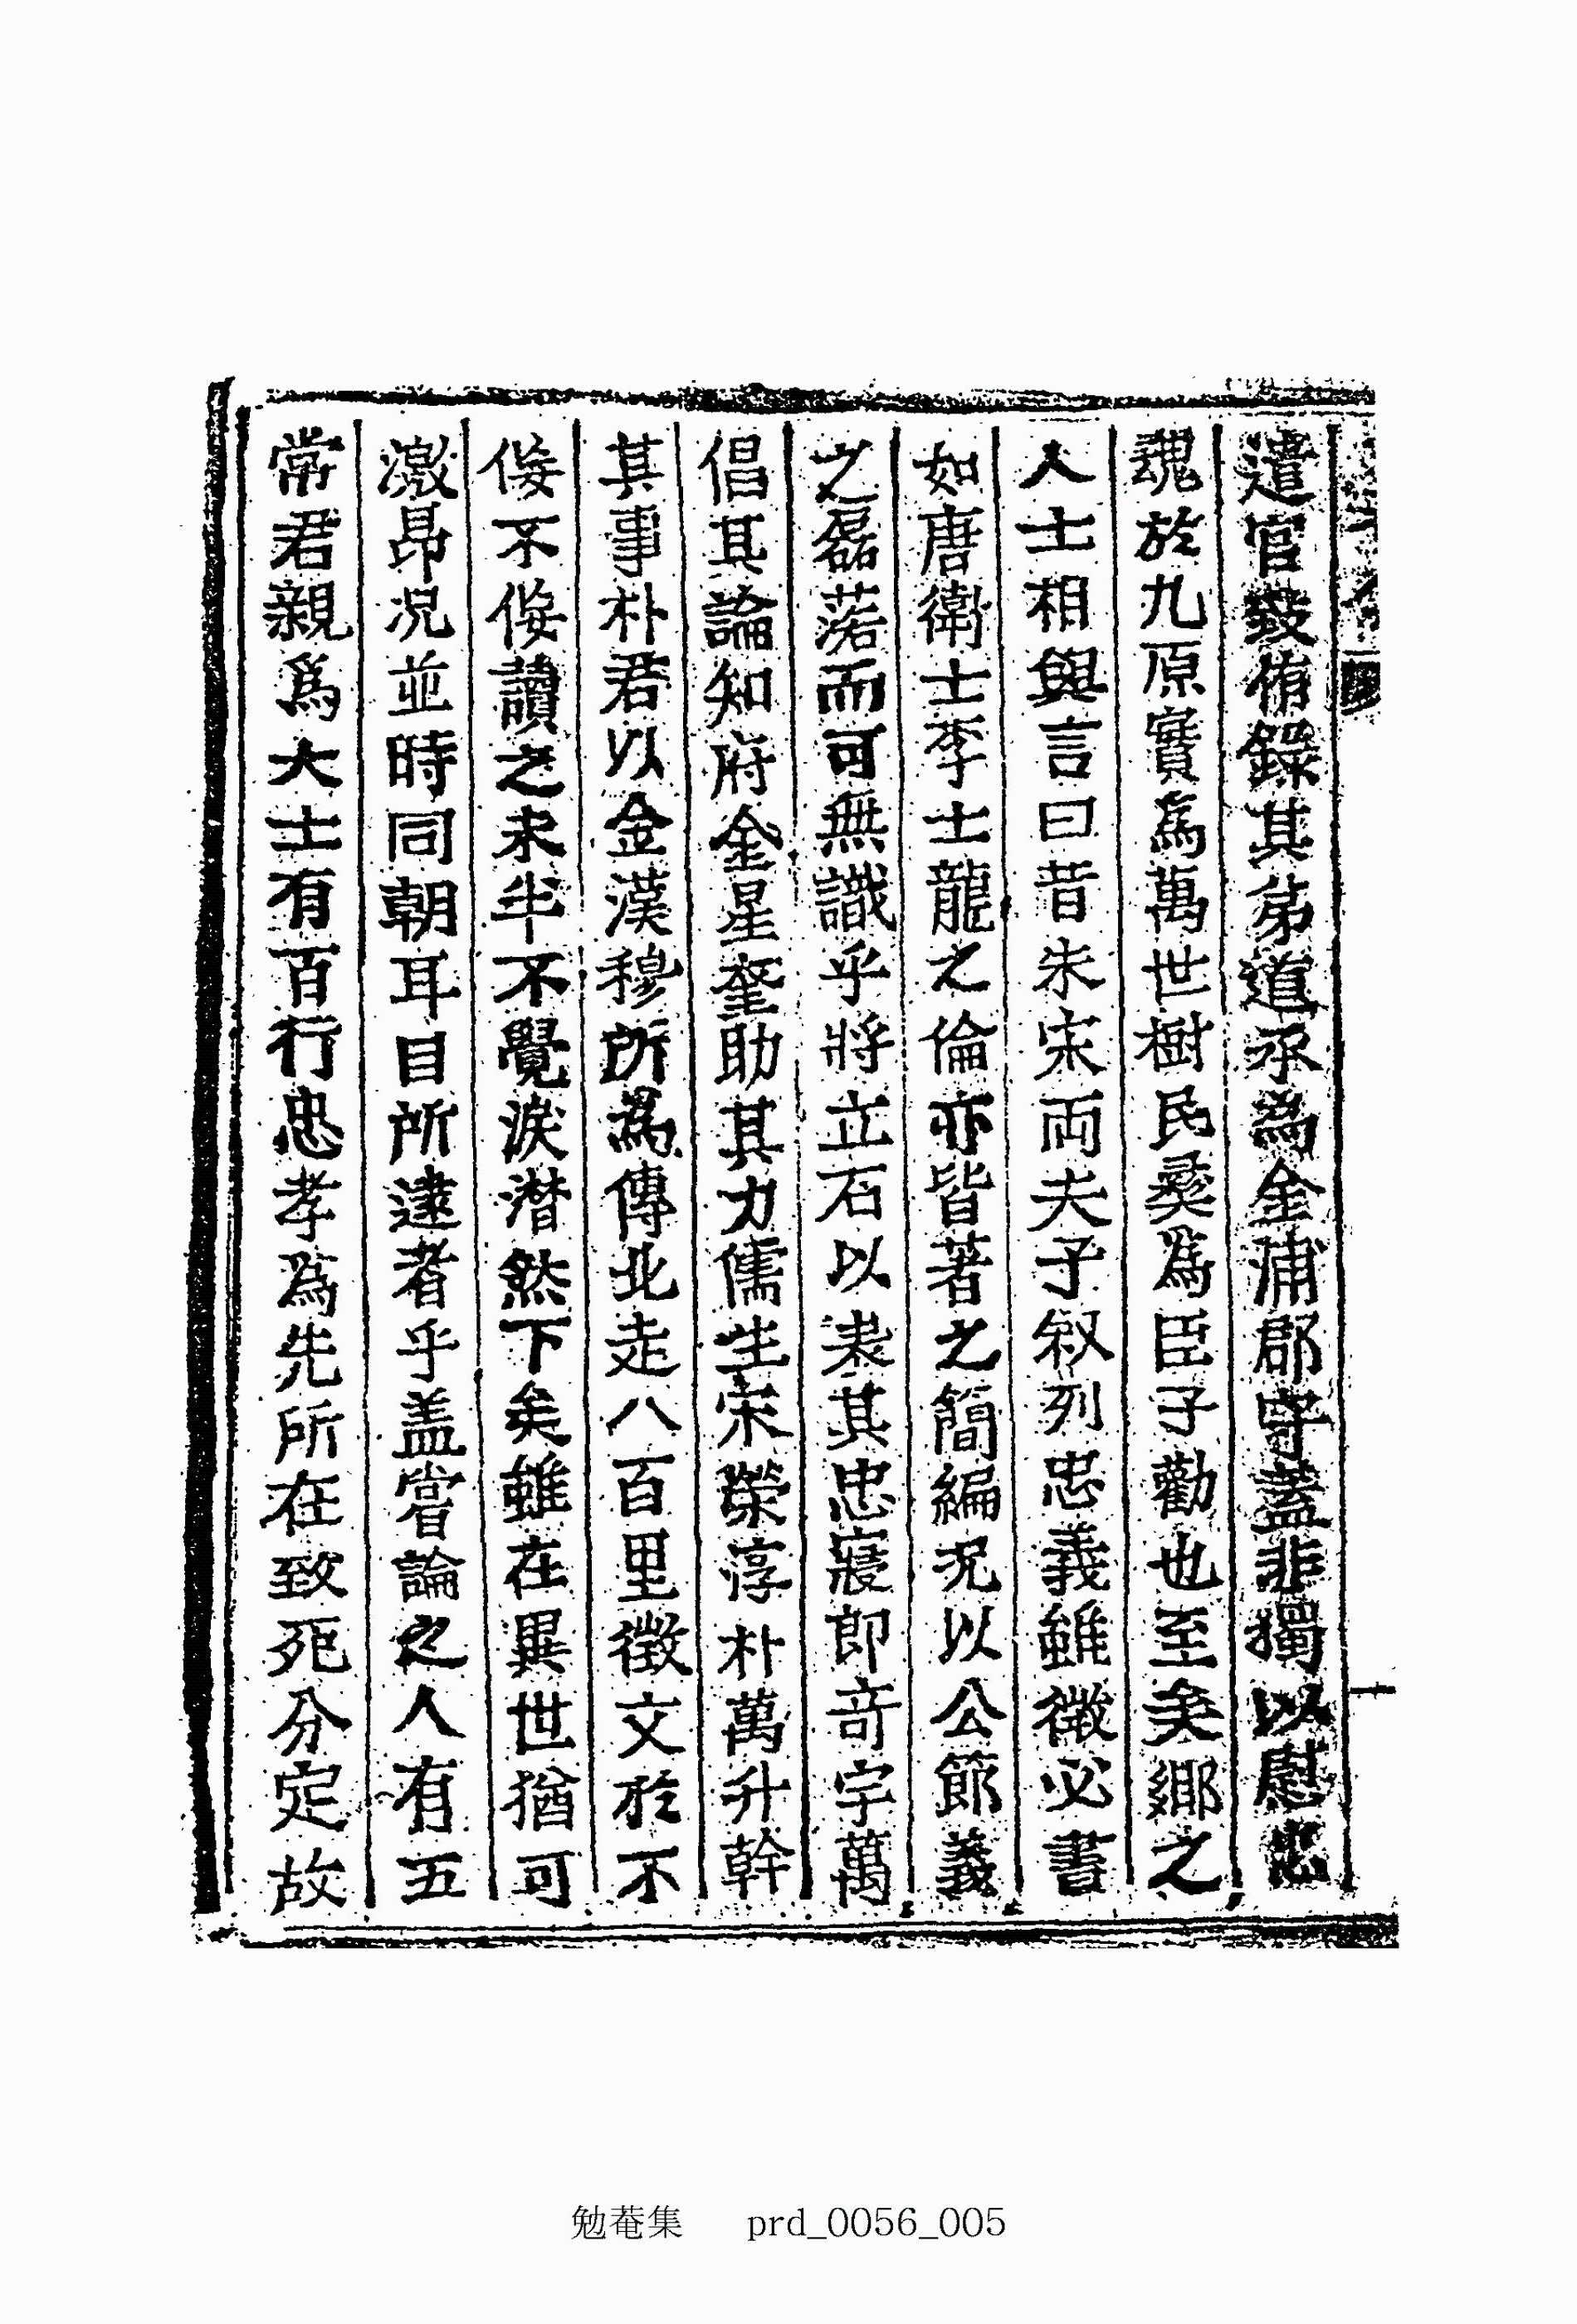 遣官致侑錄其弟道承爲金浦郡守蓋非獨以慰忠
魂於九原實爲萬世樹民彛爲臣子勸也至矣鄕之
人士相與言曰昔朱宋両夫子叙列忠義雖微必書
如唐衛士李士龍之倫亦皆著之簡編况以公節義
之磊落而可無識乎將立石以表其忠寢郎竒宇萬
倡其論知府金星奎助其力儒生宋榮淳朴萬升幹
其事朴君以金漢穆所爲傳北走八百里徵文於不
侫不侫讀之未半不覺淚潸然下矣雖在異世猶可
激昂况並時同朝耳目所逮者乎盖嘗論之人有五
常君親爲大士有百行忠孝爲先所在致死分定故
勉菴集 prd_0056_005